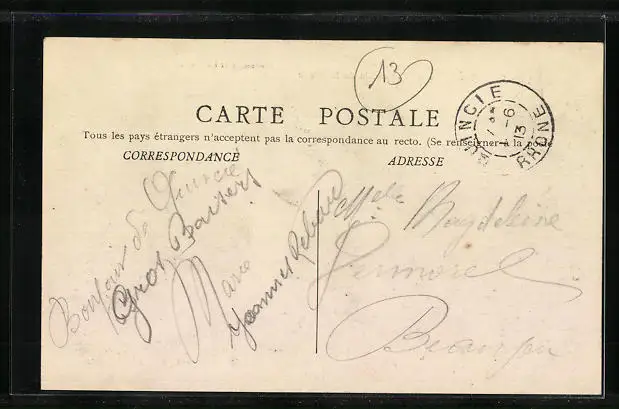 13
CARTE POSTALE
Tous les pays étrangers n'acceptent pas la correspondance au recto. (Se renseigner à la poste
CORRESPONDANCE
ADRESSE
QUINCIÉ
6
13
RHONE
Bonjour de Quincié
Gros Baisers
Marie
Melle Magdeleine
Vermorel
Beaujeu